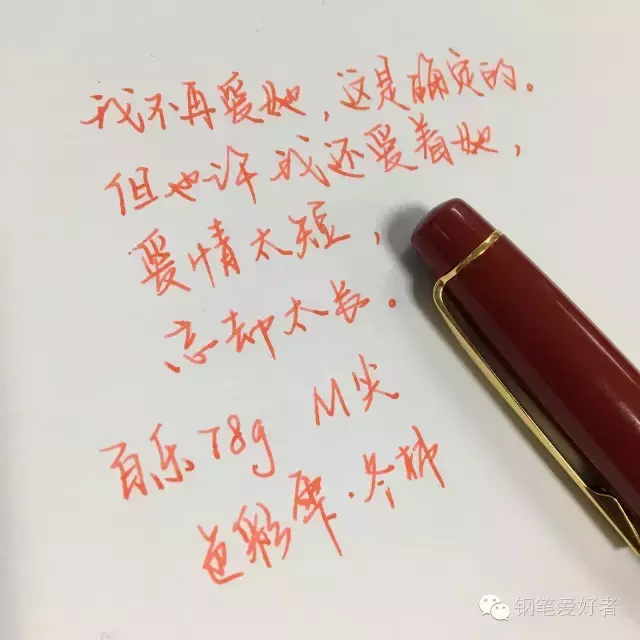 我不再爱她，这是确定的。
但也许我还爱着她，
爱情太短，
忘却太长。
百乐78g M尖
色彩雫·冬柿
钢笔爱好者